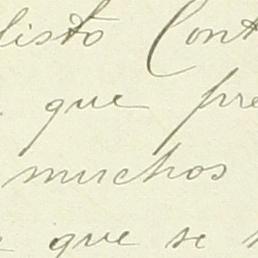 listo Cont
que pre
muchos
que se